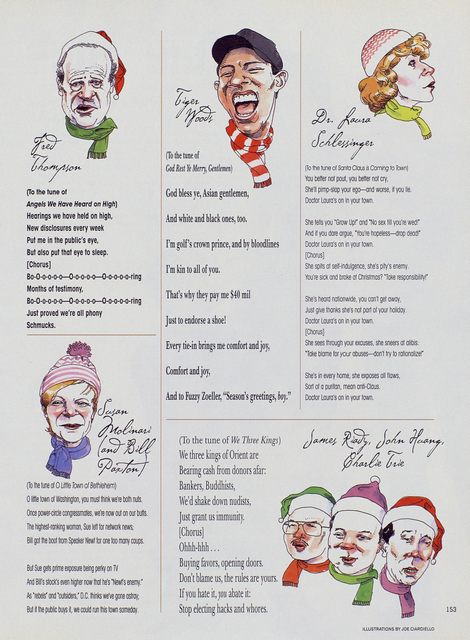 Fred
Thompson
(To the tune of
Angels We Have Heard on High)
Hearings we have held on high,
New disclosures every week
Put me in the public's eye,
But also put that eye to sleep.
[Chorus]
Bo-O-o-o-o—O-o-o-o-o—O-o-o-o-o-ring
Months of testimony,
Bo-O-o-o-o—O-o-o-o-o—O-o-o-o-o-ring
Just proved we're all phony
Schmucks.
Susan
Molinari
(and Bill
Paxton)
(To the tune of O Little Town of Bethlehem)
O little town of Washington, you must think we're both nuts.
Once power-circle congressmates, we're now out on our butts.
The highest-ranking woman, Sue left for network news;
Bill got the boot from Speaker Newt for one too many coups.
But Sue gets prime exposure being perky on TV
And Bill's stock's even higher now that he's "Newt's enemy."
As "rebels" and "outsiders," D.C. thinks we've gone astray,
But if the public buys it, we could run this town someday.
Tiger
Woods
(To the tune of
God Rest Ye Merry, Gentlemen)
God bless ye, Asian gentlemen,
And white and black ones, too.
I'm golf's crown prince, and by bloodlines
I'm kin to all of you.
That's why they pay me $40 mil
Just to endorse a shoe!
Every tie-in brings me comfort and joy,
Comfort and joy,
And to Fuzzy Zoeller, "Season's greetings, boy."
Dr. Laura
Schlessinger
(To the tune of Santa Claus is Coming to Town)
You better not pout, you better not cry,
She'll pimp-slap your ego—and worse, if you lie.
Doctor Laura's on in your town.
She tells you "Grow Up!" and "No sex till you're wed!"
And if you dare argue, "You're hopeless—drop dead!"
Doctor Laura's on in your town.
[Chorus]
She spits at self-indulgence, she's pity's enemy.
You're sick and broke at Christmas? "Take responsibility!"
She's heard nationwide, you can't get away,
Just give thanks she's not part of your holiday.
Doctor Laura's on in your town.
[Chorus]
She sees through your excuses, she sneers at alibis.
"Take blame for your abuses—don't try to rationalize!"
She's in every home, she exposes all flaws,
Sort of a puritan, mean anti-Claus.
Doctor Laura's on in your town.
James Riady, John Huang,
Charlie Trie
(To the tune of We Three Kings)
We three kings of Orient are
Bearing cash from donors afar:
Bankers, Buddhists,
We'd shake down nudists,
Just grant us immunity.
[Chorus]
Ohhh-hhh . . .
Buying favors, opening doors.
Don't blame us, the rules are yours.
If you hate it, you abate it:
Stop electing hacks and whores.
153
ILLUSTRATIONS BY JOE CIARDIELLO